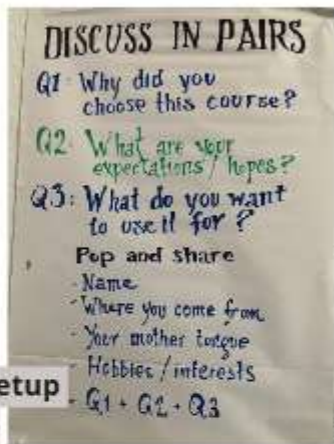 DISCUSS IN PAIRS
Q1: Why did you
choose this course?
Q2: What are your
expectations / hopes?
Q3: What do you want
to use it for ?
Pop and share
- Name
- Where you come from
- Your mother tongue
- Hobbies / interests
- Q1 + Q2 + Q3
etup